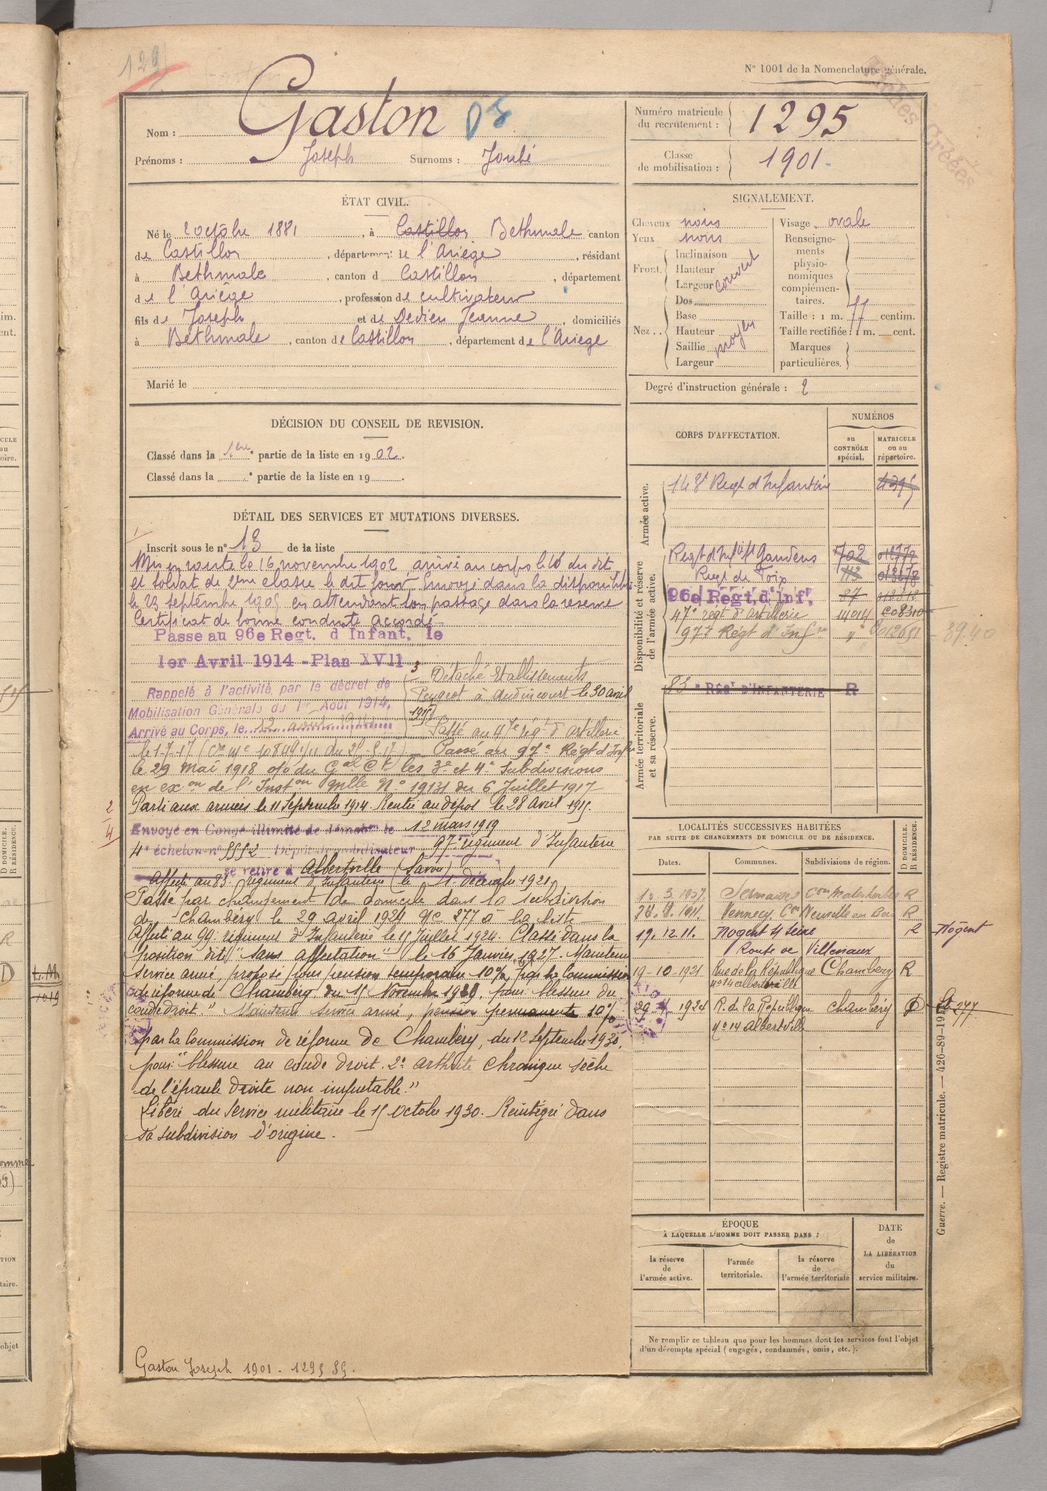 129
N° 1001 de la Nomenclature générale.
Nom : Gaston
Prénoms : Joseph Surnoms :
Numéro matricule du recrutement : 1295
Classe de mobilisation : 1901
ÉTAT CIVIL.
Né le 2 octobre 1881, à Castillon Bethmale canton
de Castillon, département de l'Ariège, résidant
à Bethmale, canton d Castillon, département
de l'Ariège, profession de cultivateur
fils de Joseph et de Dedieu Jeanne, domiciliés
à Bethmale, canton de Castillon, département de l'Ariège
Marié le
SIGNALEMENT.
Cheveux noirs
Yeux noirs
Front. Inclinaison
Hauteur
Largeur couvert
Nez... Dos
Base
Hauteur moyen
Saillie
Largeur
Visage ovale
Renseignements physionomiques complémentaires.
Taille : 1 m. 77 centim.
Taille rectifiée : 1 m. cent.
Marques particulières.
Degré d'instruction générale : 2
DÉCISION DU CONSEIL DE REVISION.
Classé dans la 1ère partie de la liste en 1902.
Classé dans la e partie de la liste en 19
DÉTAIL DES SERVICES ET MUTATIONS DIVERSES.
Inscrit sous le n° 13 de la liste
Mis en route le 16 novembre 1902, arrivé au corps le 16 du dit
et soldat de 2ème classe le dit jour. Envoyé dans la disponibilité
le 23 septembre 1905 en attendant son passage dans la réserve
Certificat de bonne conduite accordé
Passé au 96e Regt. d'Infant. le
1er Avril 1914 - Plan XVII
Rappelé à l'activité par le décret de
Mobilisation Générale du 1er Août 1914,
Arrivé au Corps, le 12 août 1914
Détaché Etablissements
Peugeot à Audincourt le 30 avril
Passé au 47e rég. d'artillerie
le 1-7-17 Passé au 97e Régt d'Infrie
le 29 mai 1918 o/o du Gal Ct les 3e et 4e Subdivisions
en exon de l'Inston Mlle N° 19131 du 6 Juillet 1917
Parti aux armées le 11 Septembre 1914. Rentré au dépôt le 28 Avril 1915.
Envoyé en Congé illimité de démob. le 12 mars 1919
4e échelon n° 5552 Dépôt démobilisateur 97e régiment d'Infanterie
se retire à Albertville (Savoie)
Affecté au 83e régiment d'Infanterie le 1 Décembre 1921
Passé par changement de domicile dans la subdivision
de Chambéry le 29 avril 1924 N° 277 à la liste
Affecté au 99e régiment d'Infanterie le 15 Juillet 1924. Classé dans la
position dite "sans affectation" le 16 Janvier 1927. Maintenu
service armé, proposé pour pension temporaire 10% par la Commission
de réforme de Chambéry du 15 Novembre pour blessure du
coude droit." Maintenu service armé, pension permanente 10%
par la Commission de réforme de Chambéry, du 12 Septembre 1930,
pour: "blessure au coude droit. 2° arthrite chronique sèche
de l'épaule droite non imputable."
Libéré du service militaire le 15 octobre 1930. Réintégré dans
sa subdivision d'origine.
Gaston Joseph 1901. 1295
CORPS D'AFFECTATION.
NUMÉROS
au CONTRÔLE spécial.
MATRICULE ou au répertoire.
Armée active.
143e Regt d'Infanterie
Disponibilité et réserve de l'armée active.
Regt d'Inf St Gaudens 702
Regt de Foix 112
96e Regt, d'Inf.
47e régt d'Artillerie
97e Régt d'Infrie
Armée territoriale et sa réserve.
83e RÉGt D'INFANTERIE R
LOCALITÉS SUCCESSIVES HABITÉES
PAR SUITE DE CHANGEMENTS DE DOMICILE OU DE RÉSIDENCE.
Dates. Communes. Subdivisions de région. D DOMICILE. R RÉSIDENCE.
Sermaises Con Malesherbes R
Vennecy, Con Neuville au Bois R
19.12.11. Nogent s/ Seine R Nogent
Route de Villenauxe
19-10-1921 Rue de la République Chambéry R
n° 14 Albertville
29-4-1924 R. de la République Chambéry D 277
n° 14 Albertville
ÉPOQUE
À LAQUELLE L'HOMME DOIT PASSER DANS :
la réserve de l'armée active.
l'armée territoriale.
la réserve de l'armée territoriale
DATE de LA LIBÉRATION du service militaire.
Ne remplir ce tableau que pour les hommes dont les services font l'objet
d'un décompte spécial (engagés, condamnés, omis, etc.).
Guerre. — Registre matricule. — 426-89-19